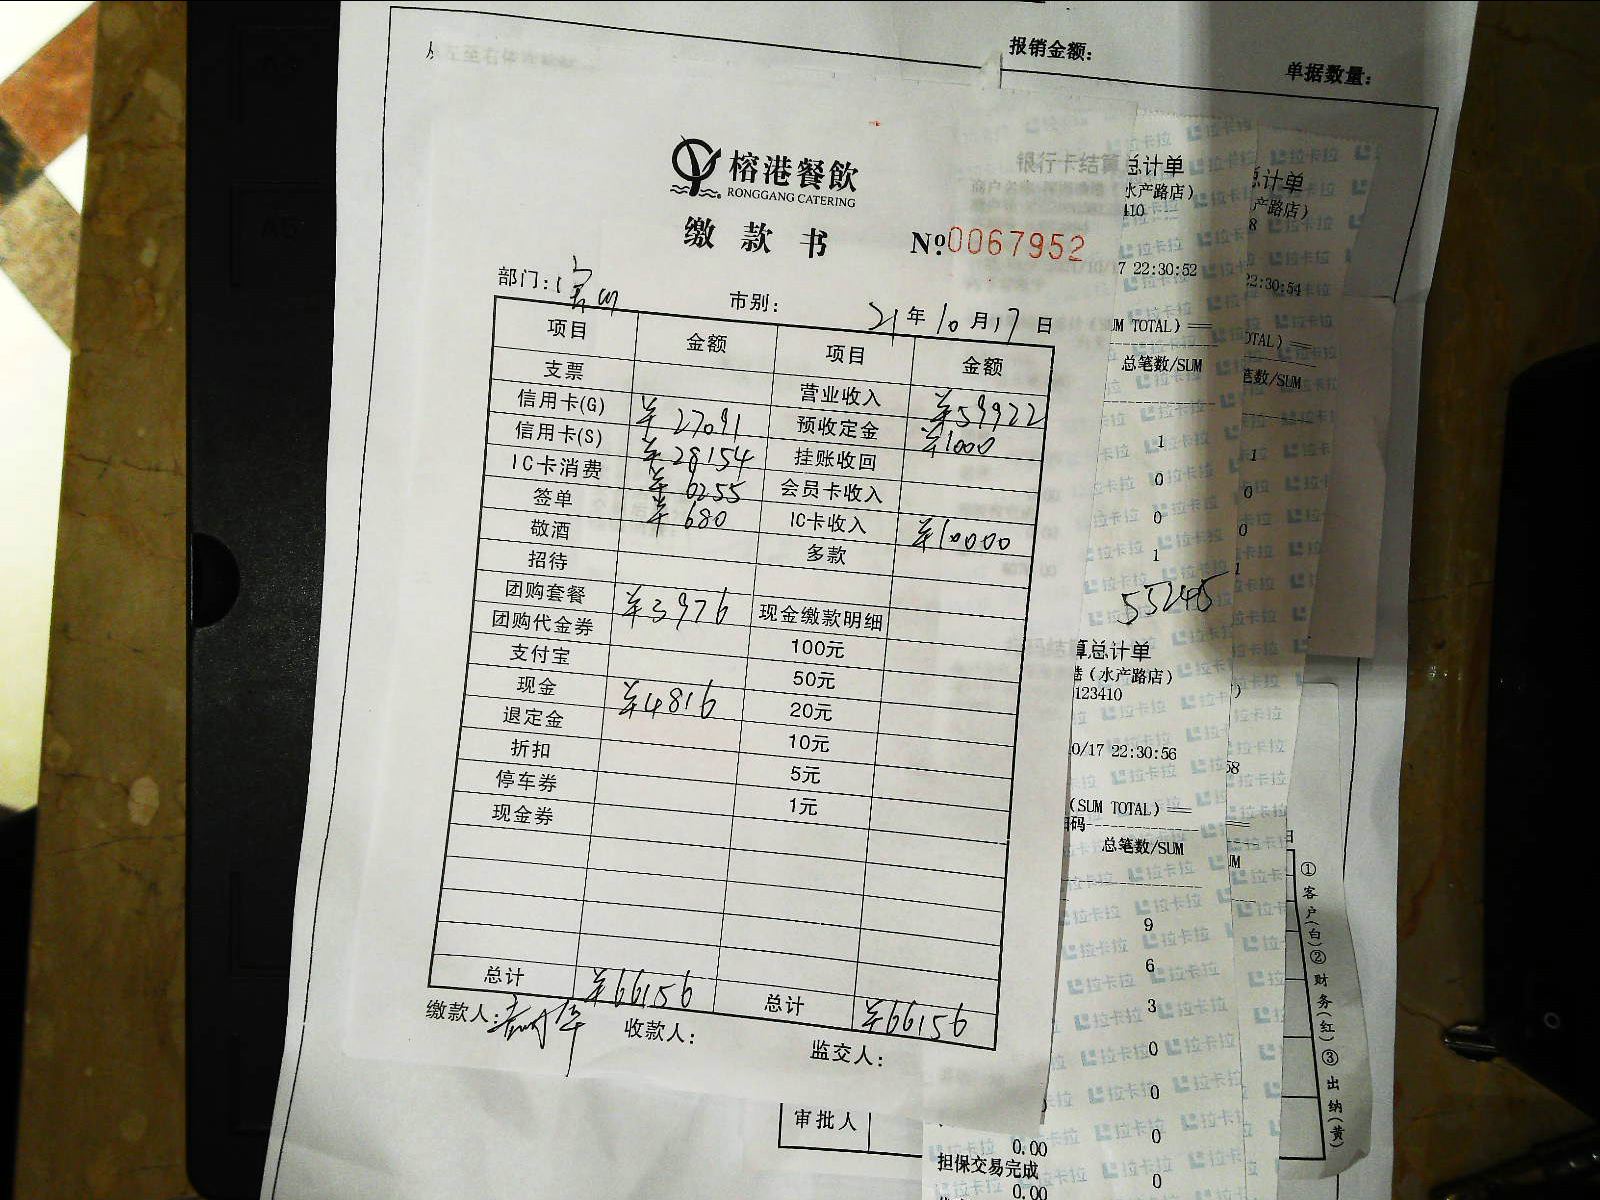 报销金额:
单据数量:
榕港餐飲
RONGGANG CATERING
缴款书 №0067952
部门: 宝山 市别: 21年10月17日
项目 金额 项目 金额
支票 营业收入 ¥59922
信用卡(G) ¥27091 预收定金 ¥1000
信用卡(S) ¥28154 挂账收回
IC卡消费 ¥6255 会员卡收入
签单 ¥680 IC卡收入 ¥10000
敬酒 多款
招待
团购套餐 ¥3976 现金缴款明细
团购代金券 100元
支付宝 50元
现金 ¥4816 20元
退定金 10元
折扣 5元
停车券 1元
现金券
总计 ¥66156 总计 ¥66156
缴款人: 收款人: 监交人:
审批人
银行卡结算总计单
水产路店)
410
7 22:30:52
UM TOTAL) ==
总笔数/SUM
1
0
0
1
55245
算总计单
港(水产路店)
123410
0/17 22:30:56
(SUM TOTAL) ==
扫码
总笔数/SUM
9
6
3
0
0
0
0
0.00
担保交易完成
0.00
总计单
产路店)
8
22:30:54
OTAL) ==
笔数/SUM
1
0
0
1
58
①客户(白)②财务(红)③出纳(黄)
拉卡拉